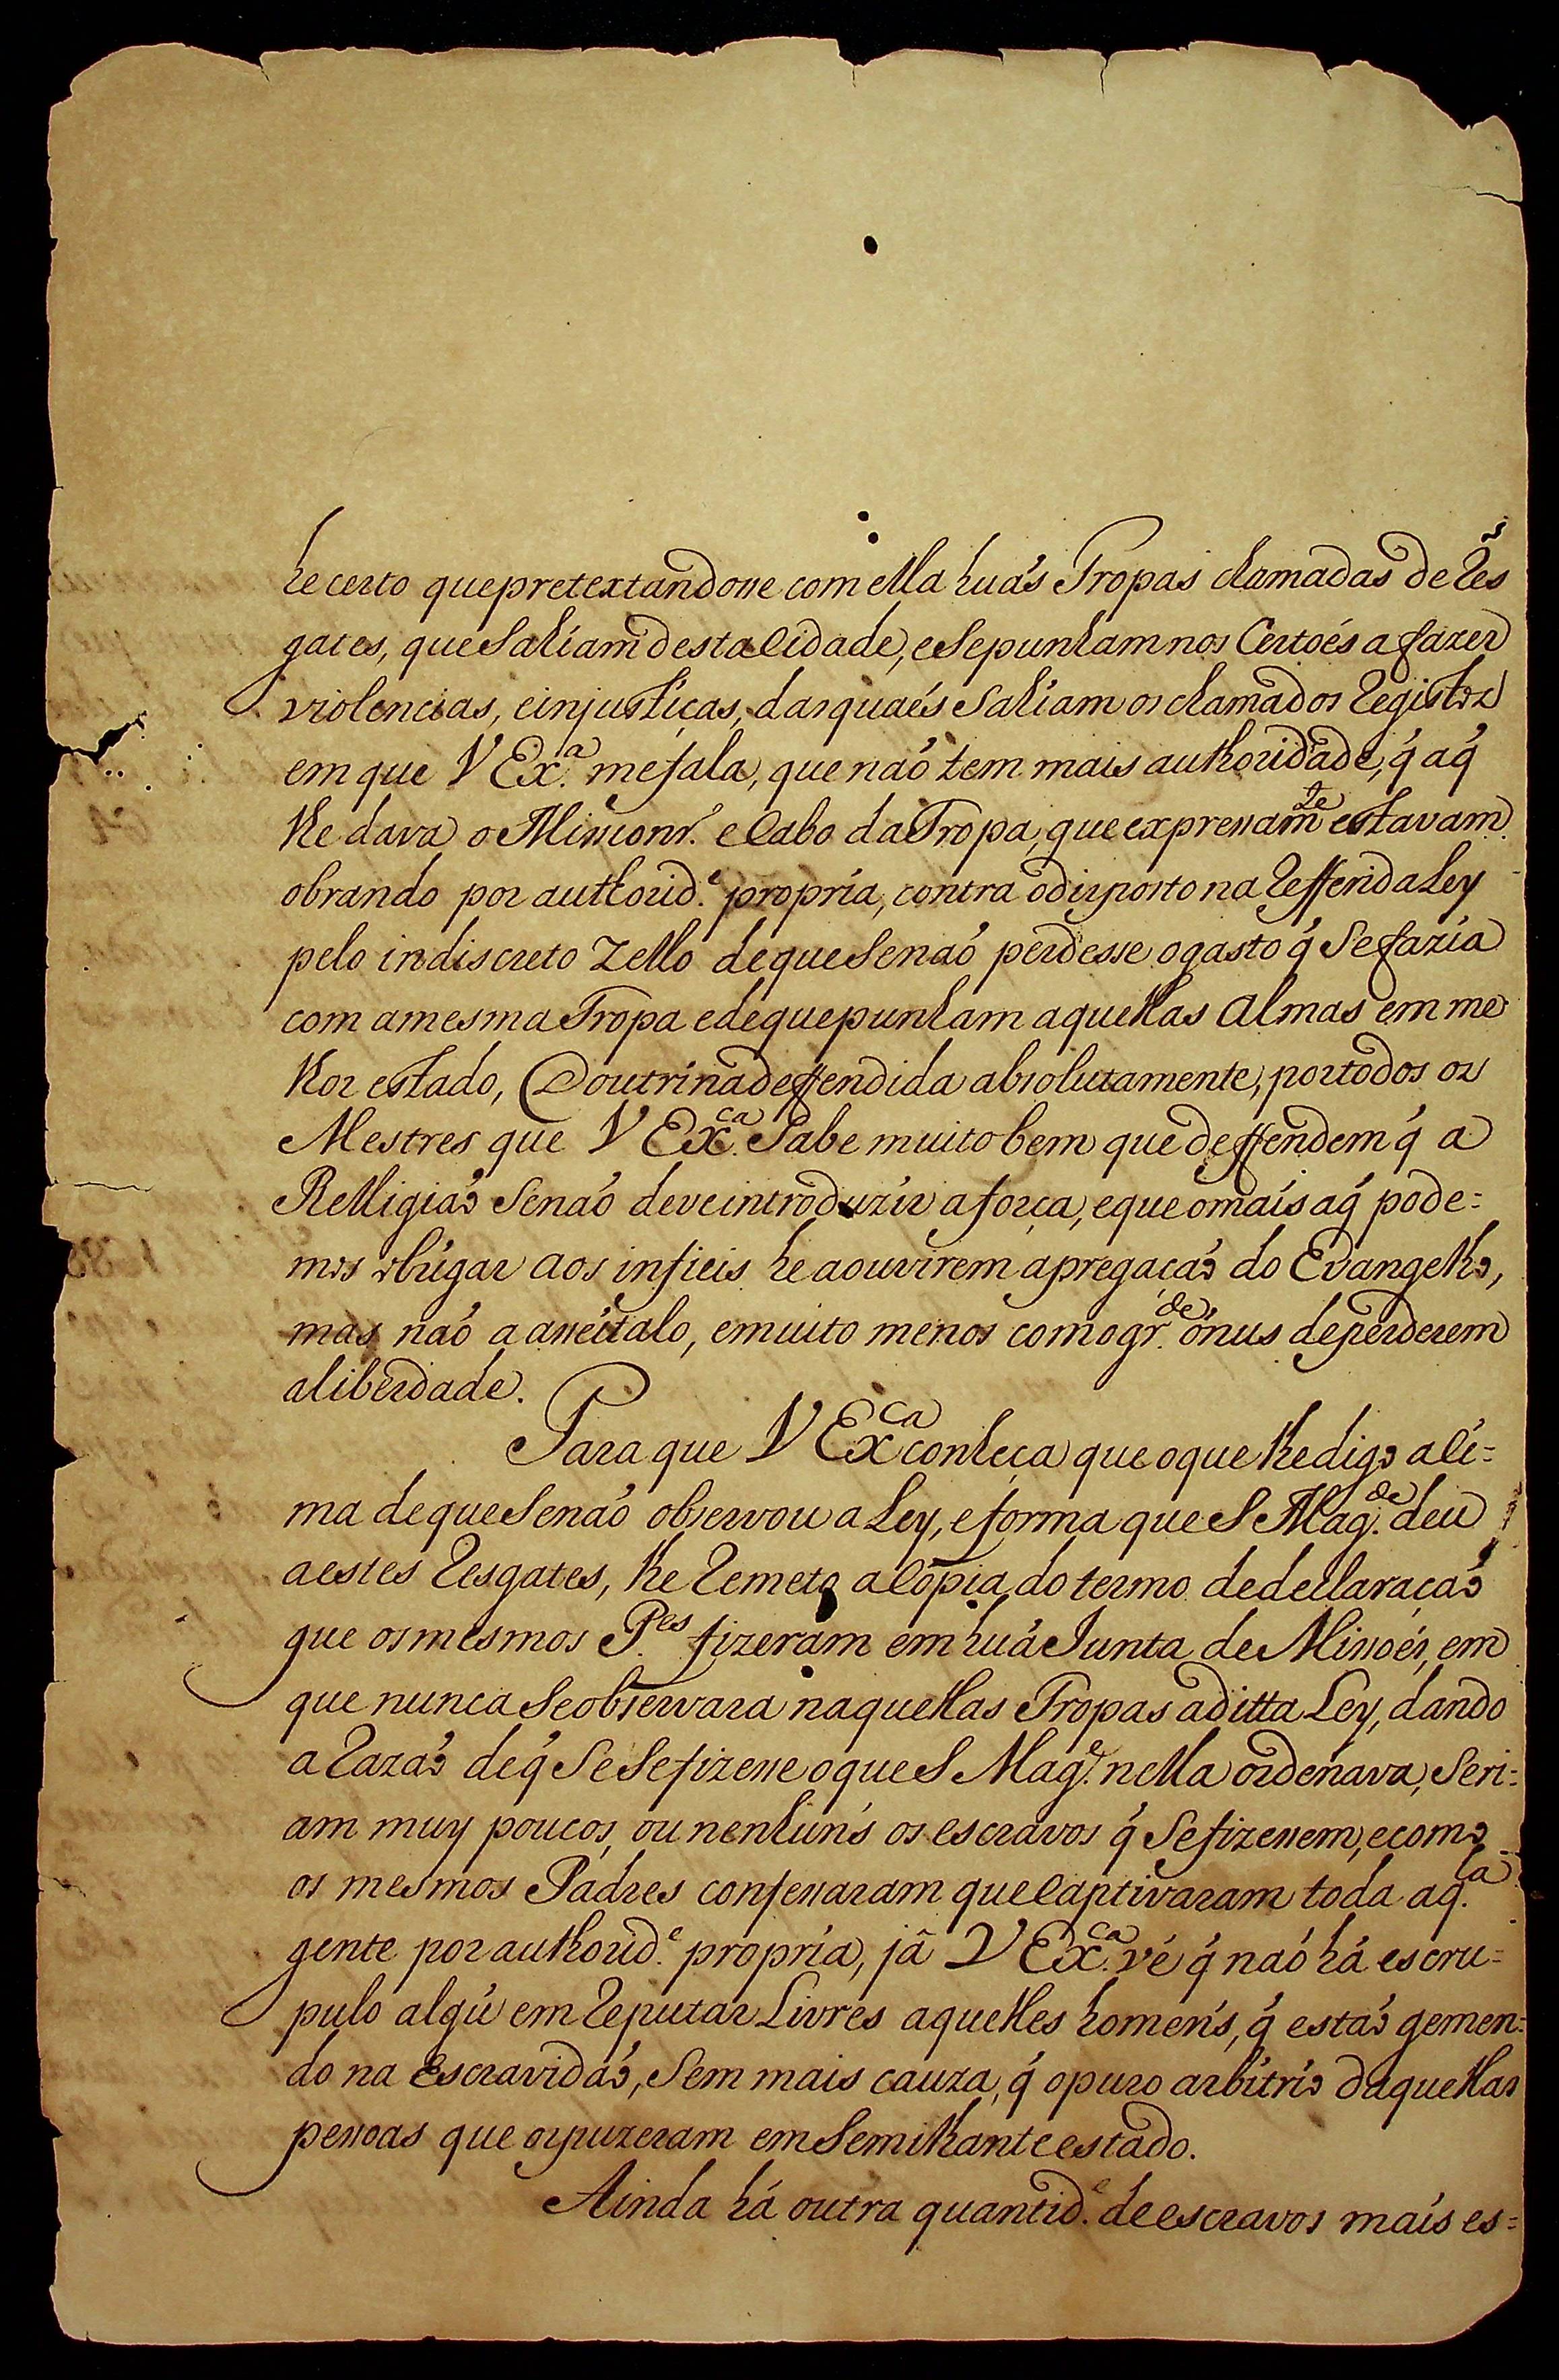 he certo que pretextandosse com ella huás Tropas chamadas de Res
gates, que Sahíam desta Cidade, e Sepunham nos Certoés a fazer
violencias, e injusticas, das quaés Sahíam os chamados Registos
em que V Ex.ª me fala, que naó tem mais authoridade, q́ aq́
lhe dava o Mission.ʳ e Cabo da Tropa, que expressam.te estavam
obrando por authorid.e propría, contra o disposto na Refferida Ley
pelo indiscreto Zello de que Senaó perdesse o gasto q́ Sefazía
com a mesma Tropa e de que punham aquellas Almas em me
lhor estado, Doutrina deffendida absolutamente, por todos os
Mestres que V Ex.ca Sabe muito bem que deffendem q́ a
Relligiaó Senaó deve introduzír a força, e que o maís aq́ pode=
mos obrígar aos infieis he a ouvirem a pregaçaó do Evangelho,
mas naó a asseitalo, e muito menos com o gr.de ónus de perderem
a liberdade.
Para que V Ex.ca conheça que o que lhe digo así=
ma de que Senaó observou a Ley, e forma que S Mag.de deu
a estes Resgates, lhe Remeto a Cópia do termo de declaraçaó
que os mesmos P.es fizeram em huá Junta de Missoés, em
que nunca Se observara naquellas Tropas a ditta Ley, dando
a Razaó de q́ Se Sefizesse o que S Mag.e nella ordenava, Seri=
am muy poucos, ou nenhuns os escravos q́ Sefizessem, e como
os mesmos Padres confessaram que Captivaram toda aq.la
gente por authorid.e propría, já V Ex.ca vé q́ naó há escru=
pulo algú em Reputar Livres aquelles homens, q́ estaó gemen=
do na Escravidaó, Sem mais cauza, q́ o puro arbítrío daquellas
pessoas que os puzeram em Semilhante estado.
Ainda há outra quantid.e de escravos maís es=